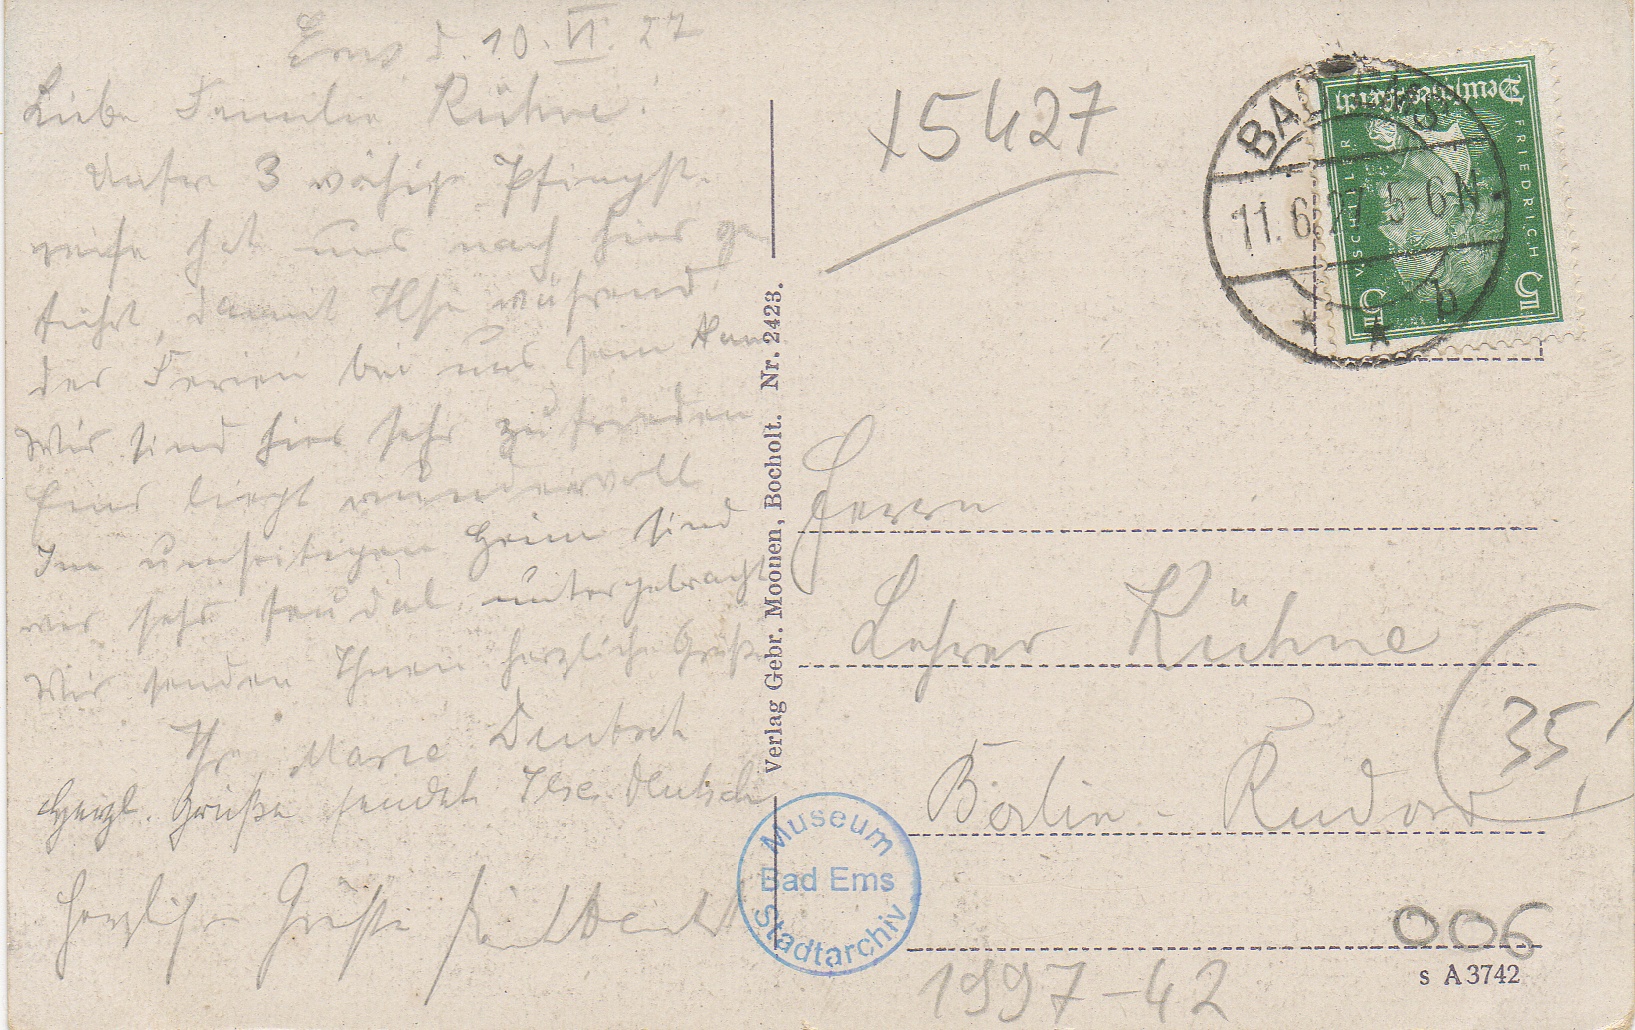 Ems d. 10. VI. 27
Liebe Familie Kühne!
Unsre 3 wöchige Pfingst-
reise hat uns nach hier ge-
führt, damit Ilse während
der Ferien bei uns sein kann
Wir sind hier sehr zufrieden
Ems liegt wundervoll
Im umseitigen Heim sind
wir sehr feudal untergebracht
Wir senden Ihnen herzliche Grüße
Ihr Marie Deutsch
Herzl. Grüße sendet Ilse Deutsch
Herzliche Grüße
Verlag Gebr. Moonen, Bocholt. Nr. 2423.
15427
BAD EMS
11.6.27.5-6N
b
Deutsches Reich
FRIEDRICH
V.SCHILLER
5 5
Herrn
Lehrer Kühne
Berlin - Rudow
35
Museum
Bad Ems
Stadtarchiv
006
s A 3742
1997-42